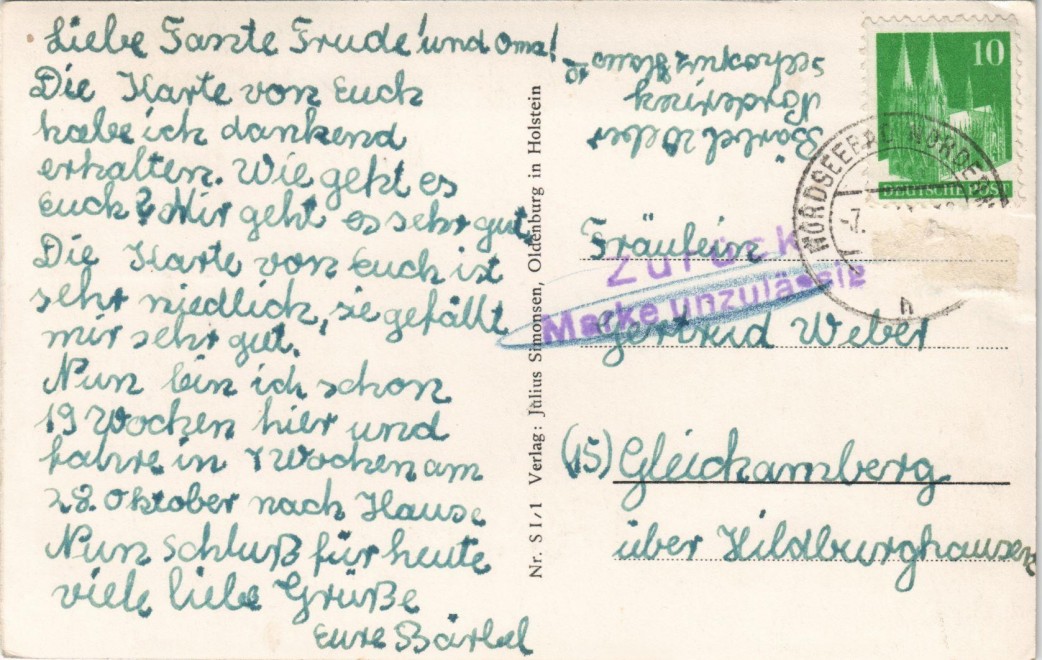 Liebe Tante Trude! und Oma!
Die Karte von Euch
habe ich dankend
erhalten. Wie geht es
Euch? Mir geht es sehr gut.
Die Karte von Euch ist
sehr niedlich, sie gefällt
mir sehr gut.
Nun bin ich schon
19 Wochen hier und
fahre in 7 Wochen am
28. Oktober nach Hause
Nun Schluß für heute
viele liebe Grüße
Eure Bärbel
Nr. S I/1 Verlag: Julius Simonsen, Oldenburg in Holstein
Bärbel Weber
Norderney
10
DEUTSCHE POST
NORDSEEBAD NORDERNEY
-7.
h
Zurück
Marke unzulässig
Fräulein
Gertrud Weber
(15) Gleichamberg
über Hildburghausen